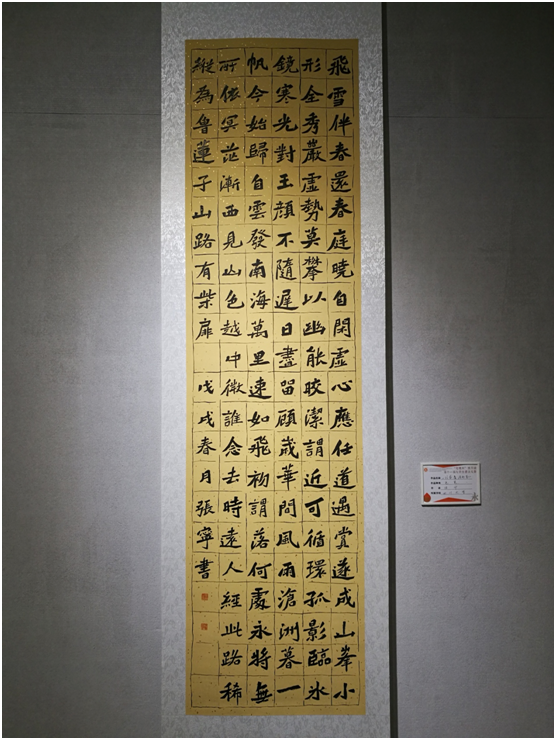 飛雪伴春還春庭曉自閑虛心應任道遇賞遂成山峯小
形全秀巖虛勢莫攀以幽能皎潔謂近可循環孤影臨氷
鏡寒光對玉顏不隨遲日盡留顧歲華間風雨滄洲暮一
帆今始歸自雲發南海萬里速如飛初謂落何處永將無
所依冥茫漸西見山色越中微誰念去時遠人經此路稀
縱為魯蓮子山路有柴扉 戊戌春月張寧書